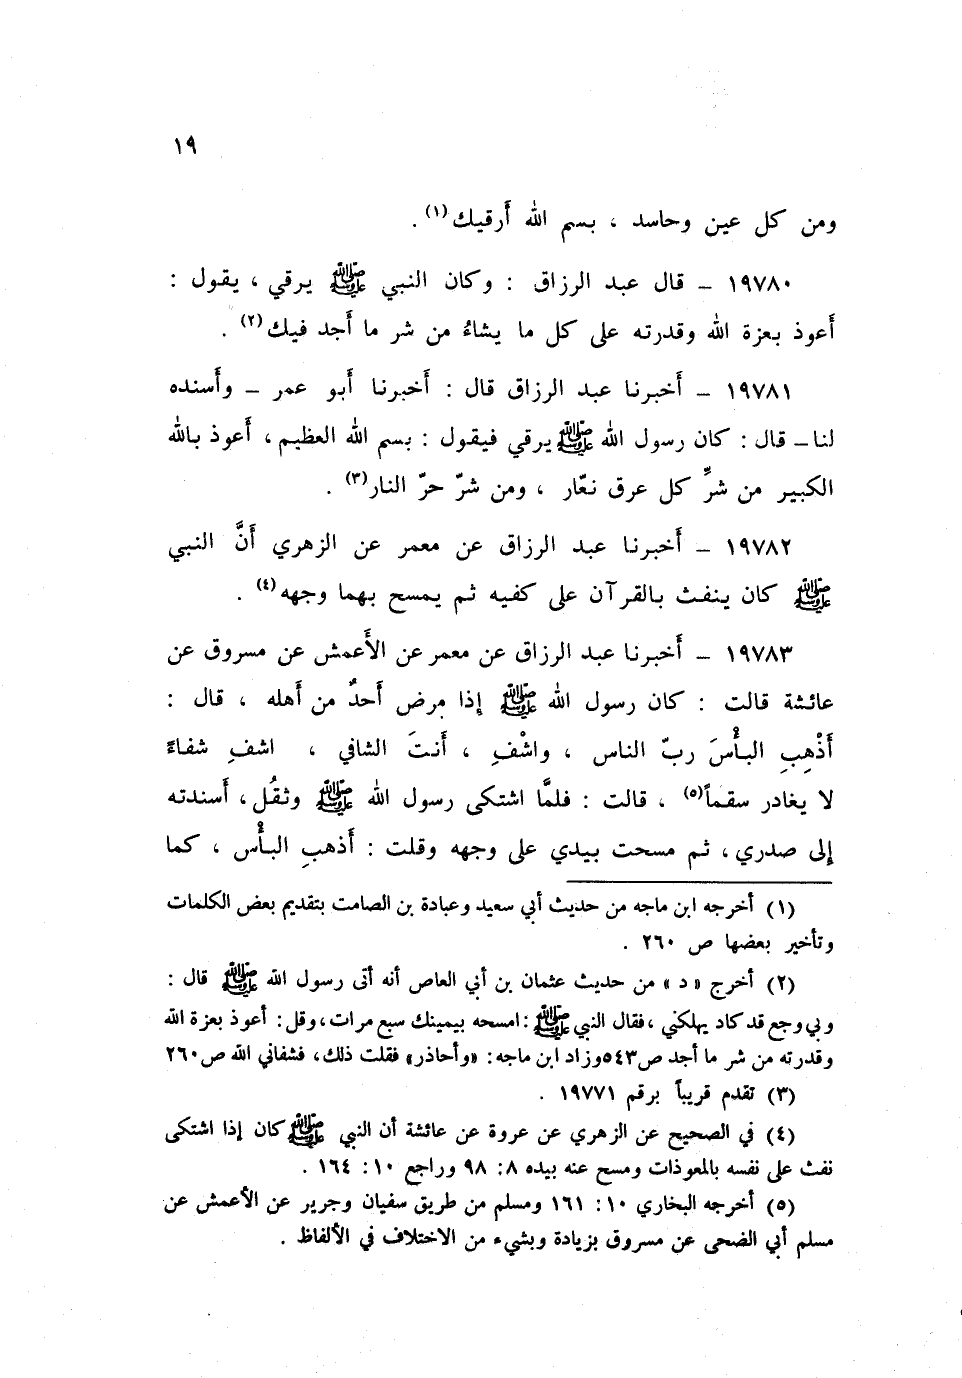 ١٩
ومن كل عين وحاسد ، بسم الله أَرقيك(١) .
١٩٧٨٠ – قال عبد الرزاق : وكان النبي ﷺ يرقي ، يقول :
أَعوذ بعزة الله وقدرته على كل ما يشاءُ من شر ما أَجد فيك(٢) .
١٩٧٨١ – أَخبرنا عبد الرزاق قال : أَخبرنا أَبو عمر – وأَسنده
لنا – قال : كان رسول الله ﷺ يرقي فيقول : بسم الله العظيم ، أَعوذ بالله
الكبير من شرِّ كل عرق نعّار ، ومن شرّ حرّ النار(٣) .
١٩٧٨٢ – أَخبرنا عبد الرزاق عن معمر عن الزهري أَنَّ النبي
ﷺ كان ينفث بالقرآن على كفيه ثم يمسح بهما وجهه(٤) .
١٩٧٨٣ – أَخبرنا عبد الرزاق عن معمر عن الأَعمش عن مسروق عن
عائشة قالت : كان رسول الله ﷺ إذا مرض أَحدٌ من أَهله ، قال :
أَذْهِبِ البأْسَ ربّ الناس ، واشْفِ ، أَنتَ الشافي ، اشفِ شفاءً
لا يغادر سقماً(٥) ، قالت : فلمَّا اشتكى رسول الله ﷺ وثقُل ، أَسندته
إلى صدري ، ثم مسحت بيدي على وجهه وقلت : أَذهبِ البأْس ، كما
(١) أخرجه ابن ماجه من حديث أبي سعيد وعبادة بن الصامت بتقديم بعض الكلمات
وتأخير بعضها ص ٢٦٠ .
(٢) أخرج « د » من حديث عثمان بن أبي العاص أنه أتى رسول الله ﷺ قال :
وبي وجع قد كاد يهلكني ، فقال النبي ﷺ : امسحه بيمينك سبع مرات ، وقل : أعوذ بعزة الله
وقدرته من شر ما أجد ص٥٤٣ وزاد ابن ماجه : «وأحاذر» فقلت ذلك ، فشفاني الله ص٢٦٠
(٣) تقدم قريباً برقم ١٩٧٧١ .
(٤) في الصحيح عن الزهري عن عروة عن عائشة أن النبي ﷺ كان إذا اشتكى
نفث على نفسه بالمعوذات ومسح عنه بيده ٨ : ٩٨ وراجع ١٠ : ١٦٤ .
(٥) أخرجه البخاري ١٠ : ١٦١ ومسلم من طريق سفيان وجرير عن الأعمش عن
مسلم أبي الضحى عن مسروق بزيادة وبشيء من الاختلاف في الألفاظ .